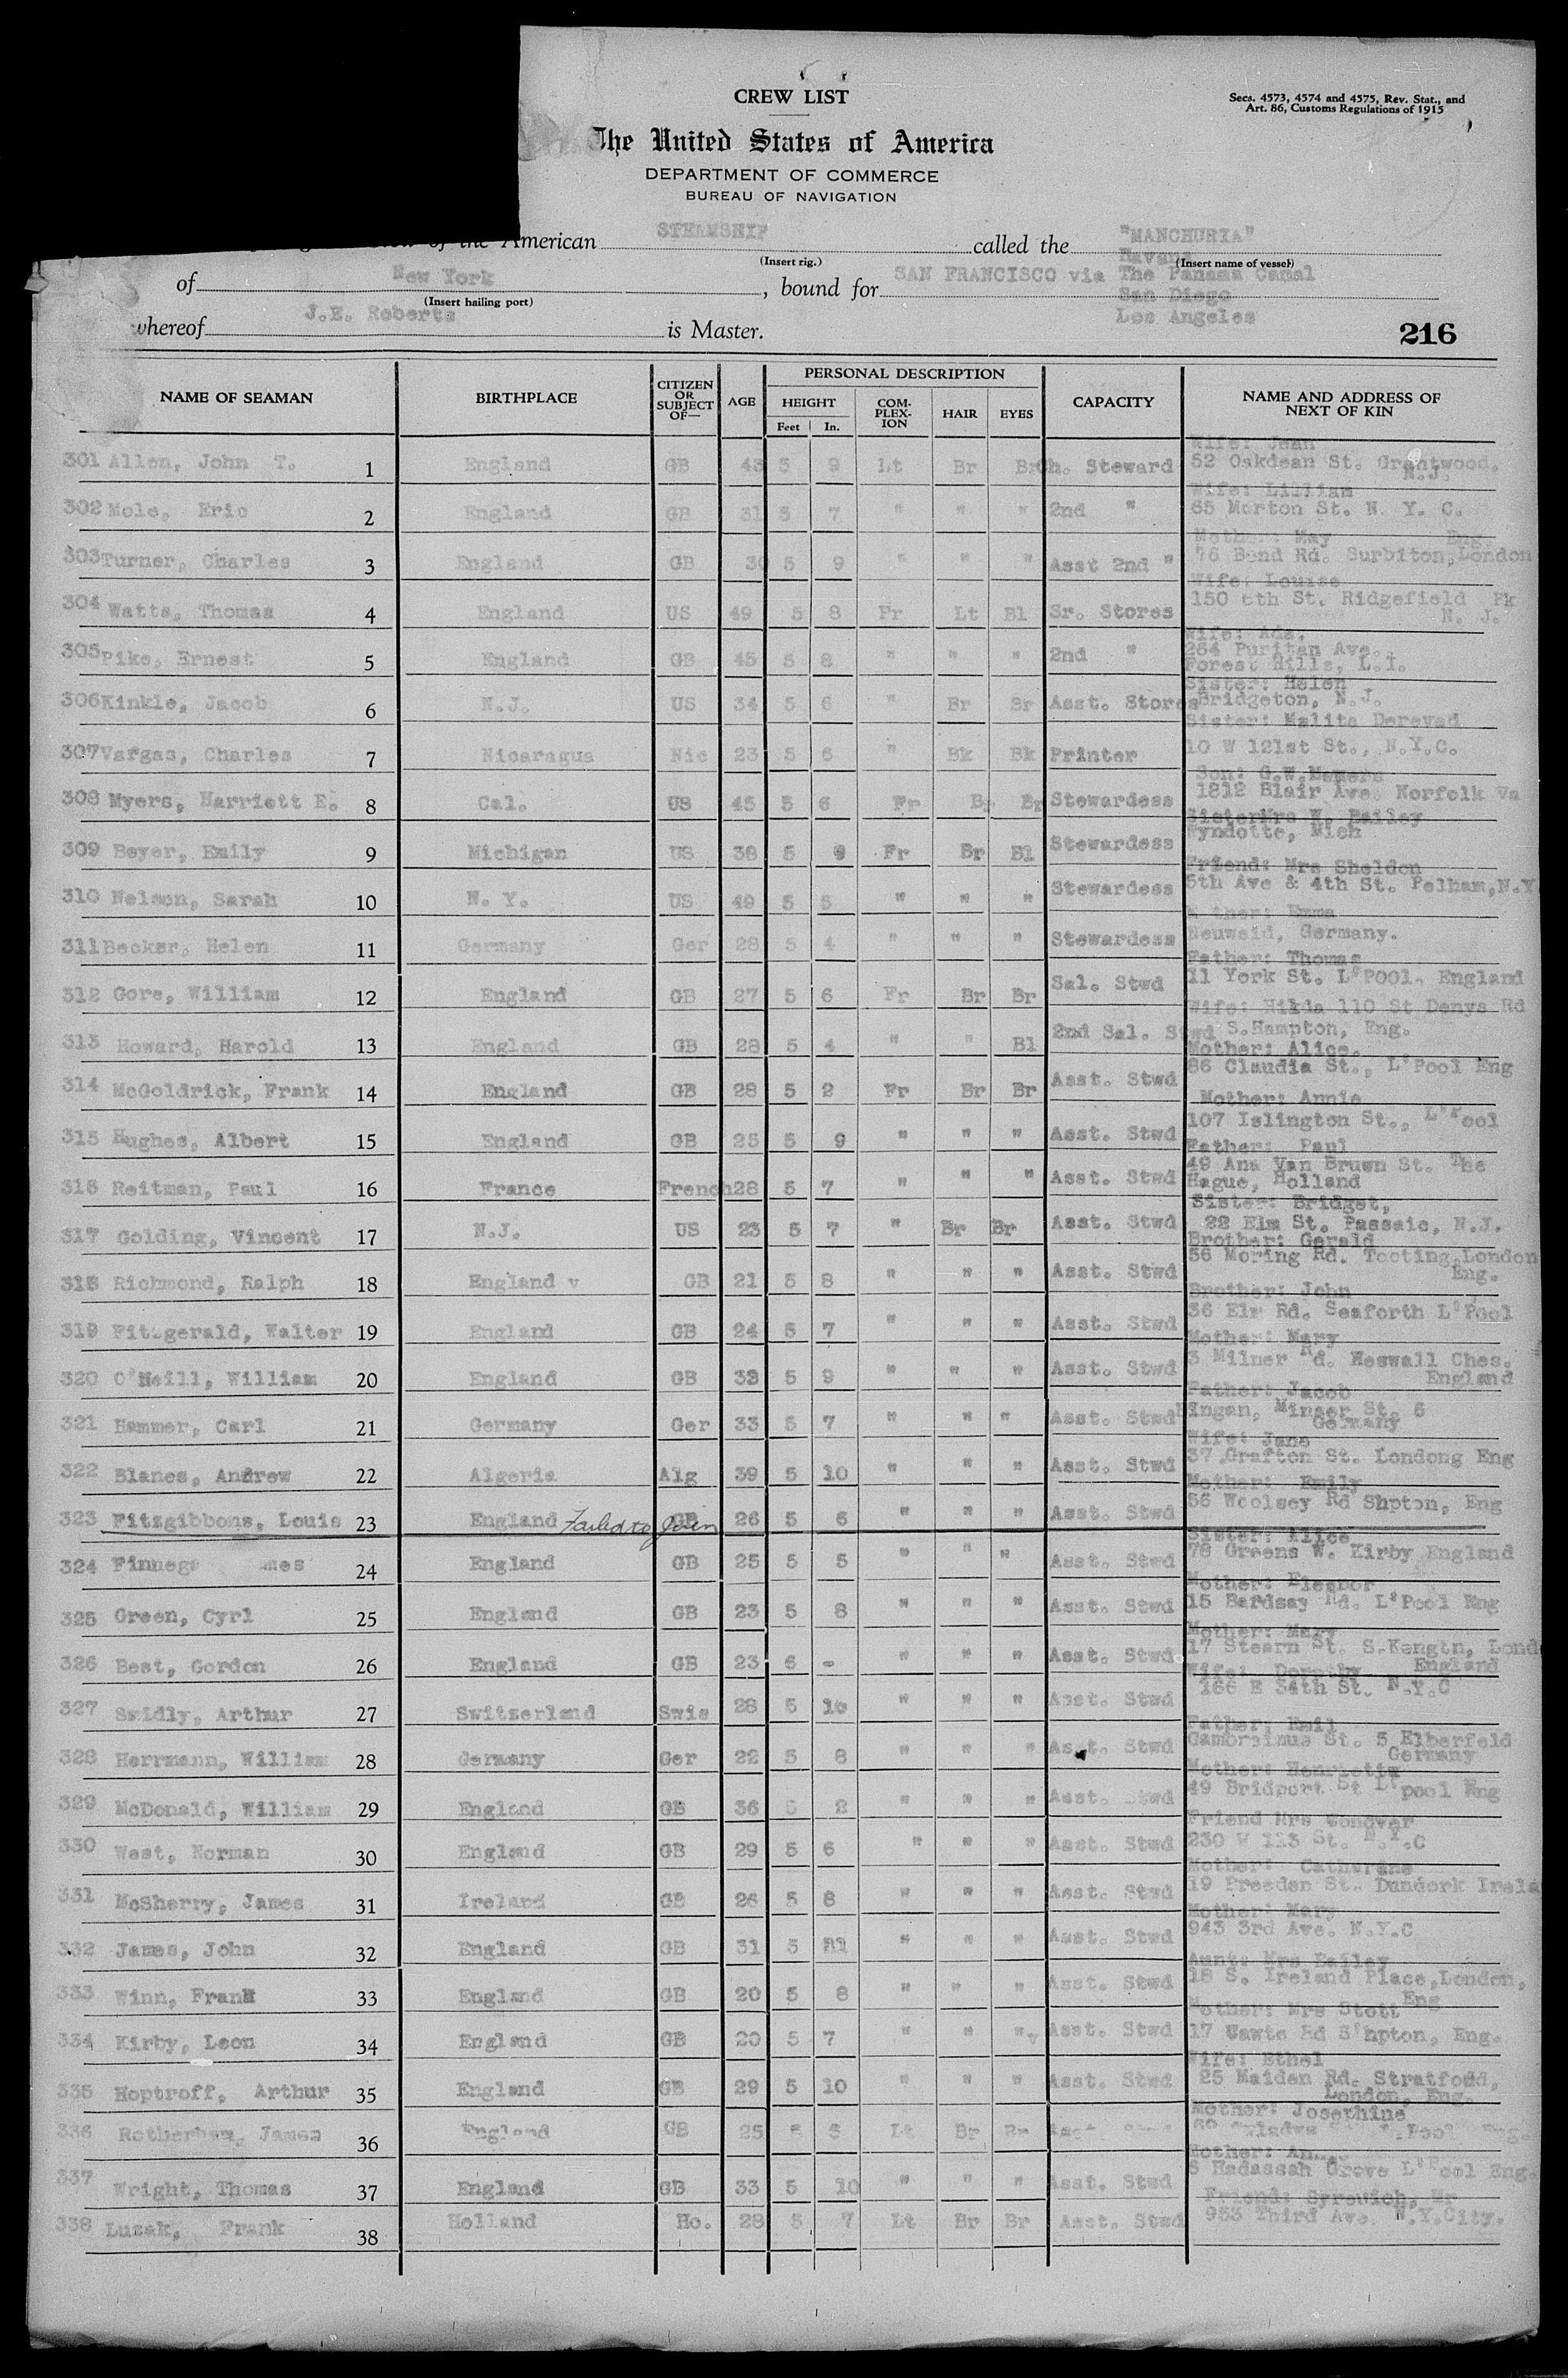 CREW LIST
Secs. 4573, 4574 and 4575, Rev. Stat., and
Art. 86, Customs Regulations of 1915
The United States of America
DEPARTMENT OF COMMERCE
BUREAU OF NAVIGATION
of the American STEAMSHIP called the "MANCHURIA"
(Insert rig.) Havana (Insert name of vessel)
of New York, bound for SAN FRANCISCO via The Panama Canal
(Insert hailing port) San Diego
whereof J.E. Roberts is Master. Los Angeles
216
NAME OF SEAMAN BIRTHPLACE CITIZEN OR SUBJECT OF— AGE PERSONAL DESCRIPTION CAPACITY NAME AND ADDRESS OF NEXT OF KIN
HEIGHT COM-PLEX-ION HAIR EYES
Feet In.
Wife: Jean
301 Allen, John T. 1 England GB 43 5 9 Lt Br Br Ch. Steward 52 Oakdean St. Grantwood.
N.J.
Wife: Lilliam
302 Mole, Eric 2 England GB 31 5 7 " " " 2nd " 65 Morton St. N. Y. C.
Mother: May Eng.
303 Turner, Charles 3 England GB 30 5 9 " " " Asst 2nd " 76 Bond Rd. Surbiton, London
Wife: Louise
304 Watts, Thomas 4 England US 49 5 8 Fr Lt Bl Sr. Stores 150 6th St. Ridgefield Pk
N. J.
Wife: Ada.
305 Pike, Ernest 5 England GB 45 5 8 " " " 2nd " 264 Puritan Ave.
Forest Hills, L.I.
Sister: Helen
306 Kinkle, Jacob 6 N.J. US 34 5 6 " Br Br Asst. Stores Bridgeton, N.J.
Sister: Malita Derevad
307 Vargas, Charles 7 Nicaragua Nic 23 5 6 " Bk Bk Printer 10 W 121st St., N.Y.C.
Son: G.W.
308 Myers, Harriett E. 8 Cal. US 45 5 6 Fr Br Br Stewardess 1812 Blair Ave. Norfolk Va
Sister Mrs W. Bailey
309 Beyer, Emily 9 Michigan US 38 5 9 Fr Br Bl Stewardess Wyndotte, Mich
Friend: Mrs Sheldon
310 Nelson, Sarah 10 N. Y. US 49 5 5 " " " Stewardess 5th Ave & 4th St. Pelham, N.Y
M ther: Emma
311 Becker, Helen 11 Germany Ger 28 5 4 " " " Stewardess Neuweid, Germany.
Father: Thomas
312 Gore, William 12 England GB 27 5 6 Fr Br Br Sal. Stwd 11 York St. L'POOl. England
Wife: Hilda 110 St Denys Rd
313 Howard, Harold 13 England GB 28 5 4 " " Bl 2nd Sal. Stwd S.Hampton, Eng.
Mother: Alice.
314 McGoldrick, Frank 14 England GB 28 5 2 Fr Br Br Asst. Stwd 86 Claudia St., L'Pool Eng
Mother: Annie
315 Hughes, Albert 15 England GB 25 5 9 " " " Asst. Stwd 107 Islington St., L'Pool
Father: Paul
316 Reitman, Paul 16 France French 28 5 7 " " " Asst. Stwd 49 Ana Van Bruen St. The
Hague, Holland
Sister: Bridget,
317 Golding, Vincent 17 N.J. US 23 5 7 " Br Br Asst. Stwd 22 Elm St. Passaic, N.J.
Brother: Gerald
318 Richmond, Ralph 18 England v GB 21 5 8 " " " Asst. Stwd 56 Moring Rd. Tooting, London
Eng.
Brother: John
319 Fitzgerald, Walter 19 England GB 24 5 7 " " " Asst. Stwd 36 Elm Rd. Seaforth L'Pool
Mother: Mary
320 O'Neill, William 20 England GB 33 5 9 " " " Asst. Stwd 3 Milner Rd. Heswall Ches.
England
Father: Jacob
321 Hammer, Carl 21 Germany Ger 33 5 7 " " " Asst. Stwd Bingan, Minser St. 6
Germany
Wife: Jane
322 Blanes, Andrew 22 Algeria Alg 39 5 10 " " " Asst. Stwd 37 Grafton St. Londong Eng
Mother: Emily
323 Fitzgibbons, Louis 23 England Failed to Join GB 26 5 6 " " " Asst. Stwd 56 Woolsey Rd Shpton, Eng
Sister: Alice
324 Finnega mes 24 England GB 25 5 5 " " " Asst. Stwd 78 Greens W. Kirby England
Mother: Eleanor
325 Green, Cyrl 25 England GB 23 5 8 " " " Asst. Stwd 15 Bardsay Rd. L'Pool Eng
Mother: Mary
326 Best, Gordon 26 England GB 23 6 - " " " Asst. Stwd 17 Stearn St. S.Kengtn, Lond
England
Wife: Dorothy
327 Smidly, Arthur 27 Switzerland Swis 28 5 10 " " " Asst. Stwd 166 E 34th St. N.Y.C
Father: Emil
328 Herrmann, William 28 Germany Ger 22 5 8 " " " Asst. Stwd Gambrainus St. 5 Elberfeld
Germany
Mother: Henrietta
329 McDonald, William 29 England GB 36 5 2 " " " Asst. Stwd 49 Bridport St L'pool Eng
Friend Mrs Conover
330 West, Norman 30 England GB 29 5 6 " " " Asst. Stwd 230 W 113 St. N.Y.C
Mother: Catherine
331 McSherry, James 31 Ireland GB 26 5 8 " " " Asst. Stwd 19 Breeden St. Dundork Irela
Mother: Mary
332 James, John 32 England GB 31 5 11 " " " Asst. Stwd 943 3rd Ave. N.Y.C
Aunt: Mrs Bailey
333 Winn, Frank 33 England GB 20 5 8 " " " Asst. Stwd 18 S. Ireland Place, London,
Eng
Mother: Mrs Stott
334 Kirby, Leon 34 England GB 20 5 7 " " " Asst. Stwd 17 Cawte Rd S'hpton, Eng.
Wife: Ethel
335 Hoptroff, Arthur 35 England GB 29 5 10 " " " Asst. Stwd 25 Maiden Rd. Stratfodd,
London, Eng.
Mother: Josephine
336 Rotherham, James 36 England GB 25 5 5 Lt Br Br Pool Eng.
Mother:
337 Wright, Thomas 37 England GB 33 5 10 " " " Asst. Stwd 6 Hadassah Grove L'Pool Eng.
Friend: Syrovich, Mr
338 Luzak, Frank 38 Holland Ho. 28 5 7 Lt Br Br Asst. Stwd 953 Third Ave. N.Y.City.